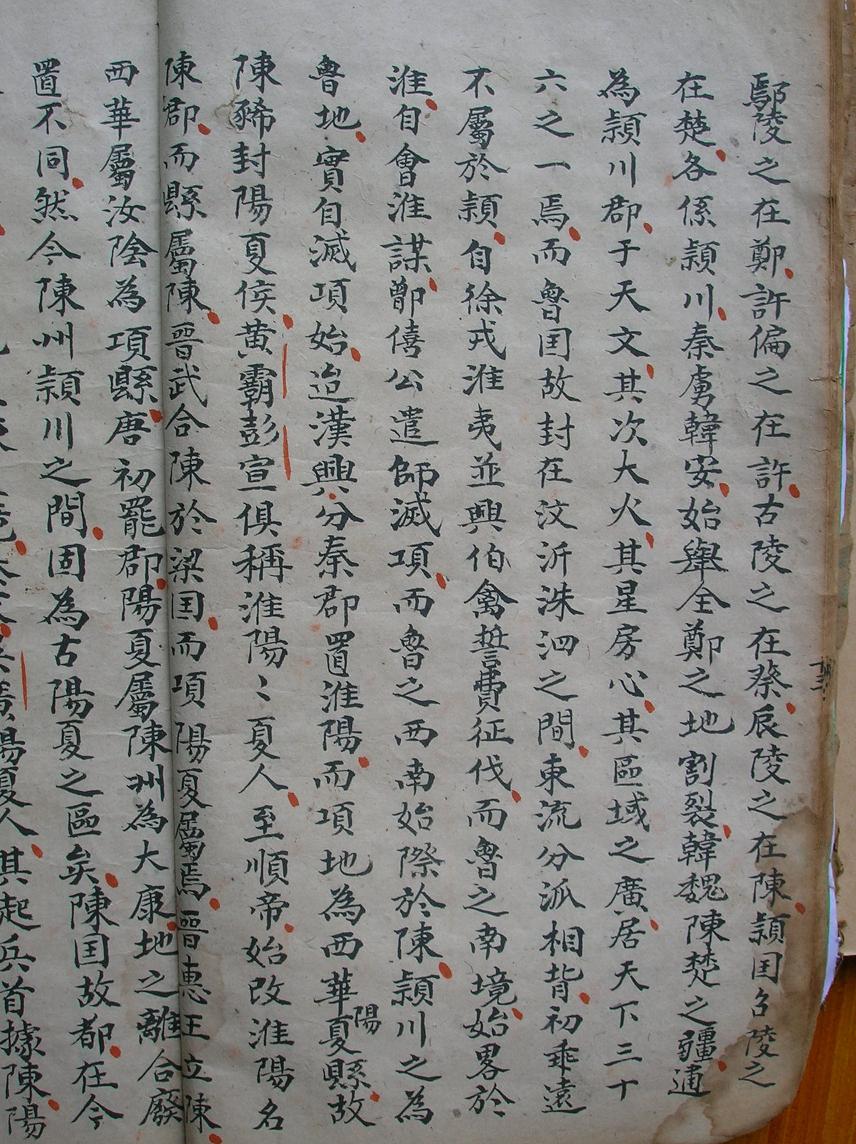 鄢陵之在鄭許偏之在許古陵之在蔡辰陵之在陳潁囯召陵之
在楚各係潁川秦虜韓安始舉全鄭之地割裂韓魏陳楚之疆通
為潁川郡于天文其次大火其星房心其區域之廣居天下三十
六之一焉而魯囯故封在汶沂洙泗之間東流分派相背初乖遠
不屬於潁自徐戎淮夷並興伯禽誓費征伐而魯之南境始畧於
淮自會淮謀鄫僖公遣師滅項而魯之西南始際於陳潁川之為
魯地實自滅項始迨漢興分秦郡置淮陽而項地為西華陽夏縣故
陳豨封陽夏侯黃霸彭宣俱稱淮陽〻夏人至順帝始改淮陽名
陳郡而縣屬陳晉武合陳於梁囯而項陽夏屬焉晉惠王立陳
西華屬汝陰為項縣唐初罷郡陽夏屬陳州為大康地之離合廢
置不同然今陳州潁川之間固為古陽夏之區矣陳囯故都在今
陽夏人其起兵首據陳陽